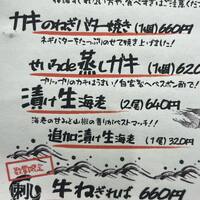 カキのねぎバター焼き (1個) 660円
ネギバターをたっぷりのせて焼き上げました！
せいろde蒸しガキ (1個) 620
プリップリのカキはうまい！自家製
漬け生海老 (2尾) 640円
海老の甘みと山椒の香りがベストマッチ！！
追加漬け生海老 (1尾) 320円
数量限定
刺し 牛ねぎれば 660円